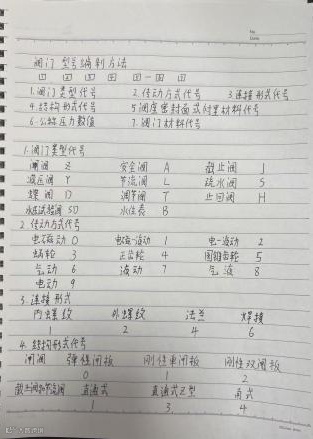 No.
Date
阀门 型号编制方法
1.阀门类型代号 2.传动方式代号 3.连接形式代号
4.结构形式代号 5.阀座密封面或衬里材料代号
6.公称压力数值 7.阀门材料代号
1.阀门类型代号
闸阀 Z 安全阀 A 截止阀 J
减压阀 Y 节流阀 L 疏水阀 S
蝶阀 D 调节阀 T 止回阀 H
水压试验阀 SD 水位表 B
2.传动方式代号
电磁动 0 电磁-液动 1 电-液动 2
蜗轮 3 正齿轮 4 圆锥齿轮 5
气动 6 液动 7 气液 8
电动 9
3.连接形式
内螺纹 外螺纹 法兰 焊接
1 2 4 6
4.结构形式代号
闸阀 弹性闸板 刚性单闸板 刚性双闸板
0 1 2
截止阀和节流阀 直通式 直通式Z型 角式
1 3 4